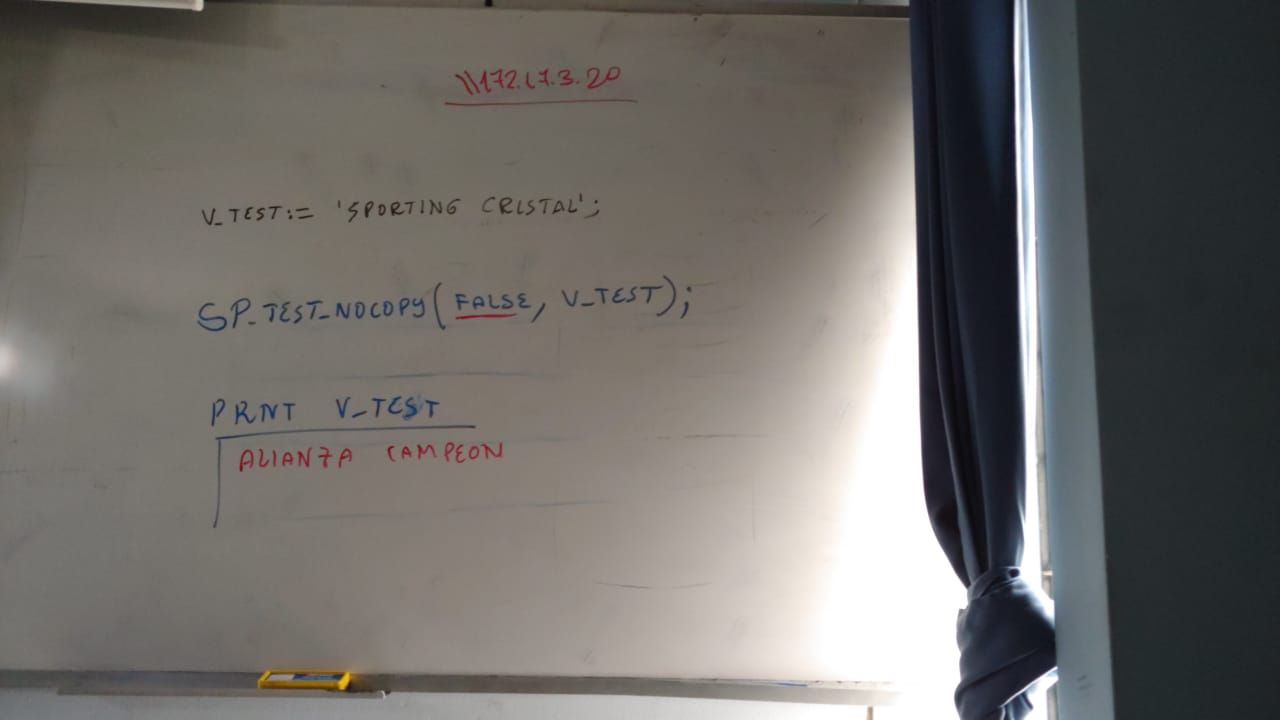 \\172.17.3.20
V_TEST:= 'SPORTING CRISTAL';
SP_TEST_NOCOPY(FALSE, V_TEST);
PRNT V_TEST
ALIANZA CAMPEON